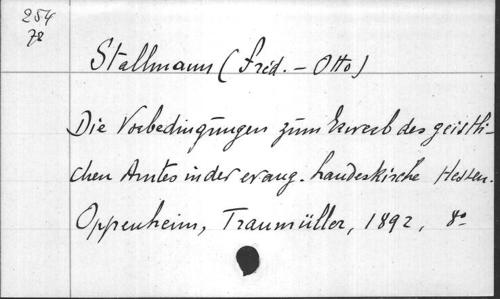 254
78
Stallmann (Frid. - Otto)
Die Vorbedingungen zum Erwerb des geistli-
chen Amtes in der evang. Landeskirche Hessen.
Oppenheim, Traumüller, 1892, 8°